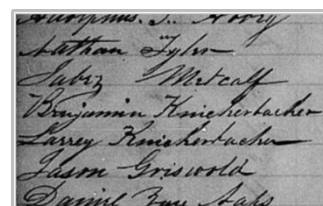 Adolphus
Nathan Tyler
Jabez Metcalf
Benjamin Knickerbacker
Larrey Knickerbacker
Jason Griswold
Daniel